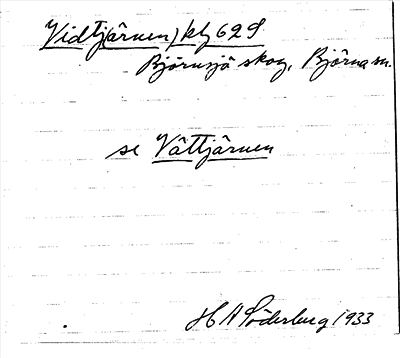 Vidtjärnen) kbl 62 S
Björnsjö skog, Björna sn.
se Våttjärnen
H A Söderberg 1933